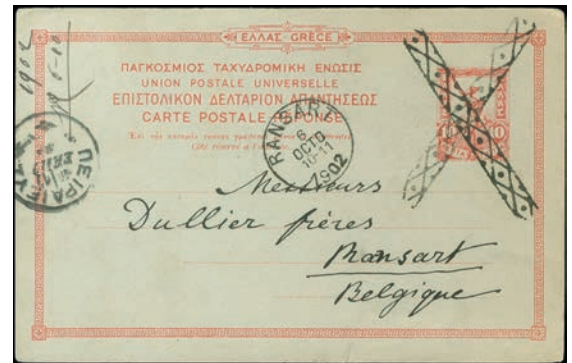 ΕΛΛΑΣ GRÈCE
ΠΑΓΚΟΣΜΙΟΣ ΤΑΧΥΔΡΟΜΙΚΗ ΕΝΩΣΙΣ
UNION POSTALE UNIVERSELLE
ΕΠΙΣΤΟΛΙΚΟΝ ΔΕΛΤΑΡΙΟΝ ΑΠΑΝΤΗΣΕΩΣ
CARTE POSTALE RÉPONSE
RANSART
6
OCTO
10-11
1902
10
1902
ΠΕΙΡΑΙΕΥΣ
Messieurs
Dullier frères
Ransart
Belgique